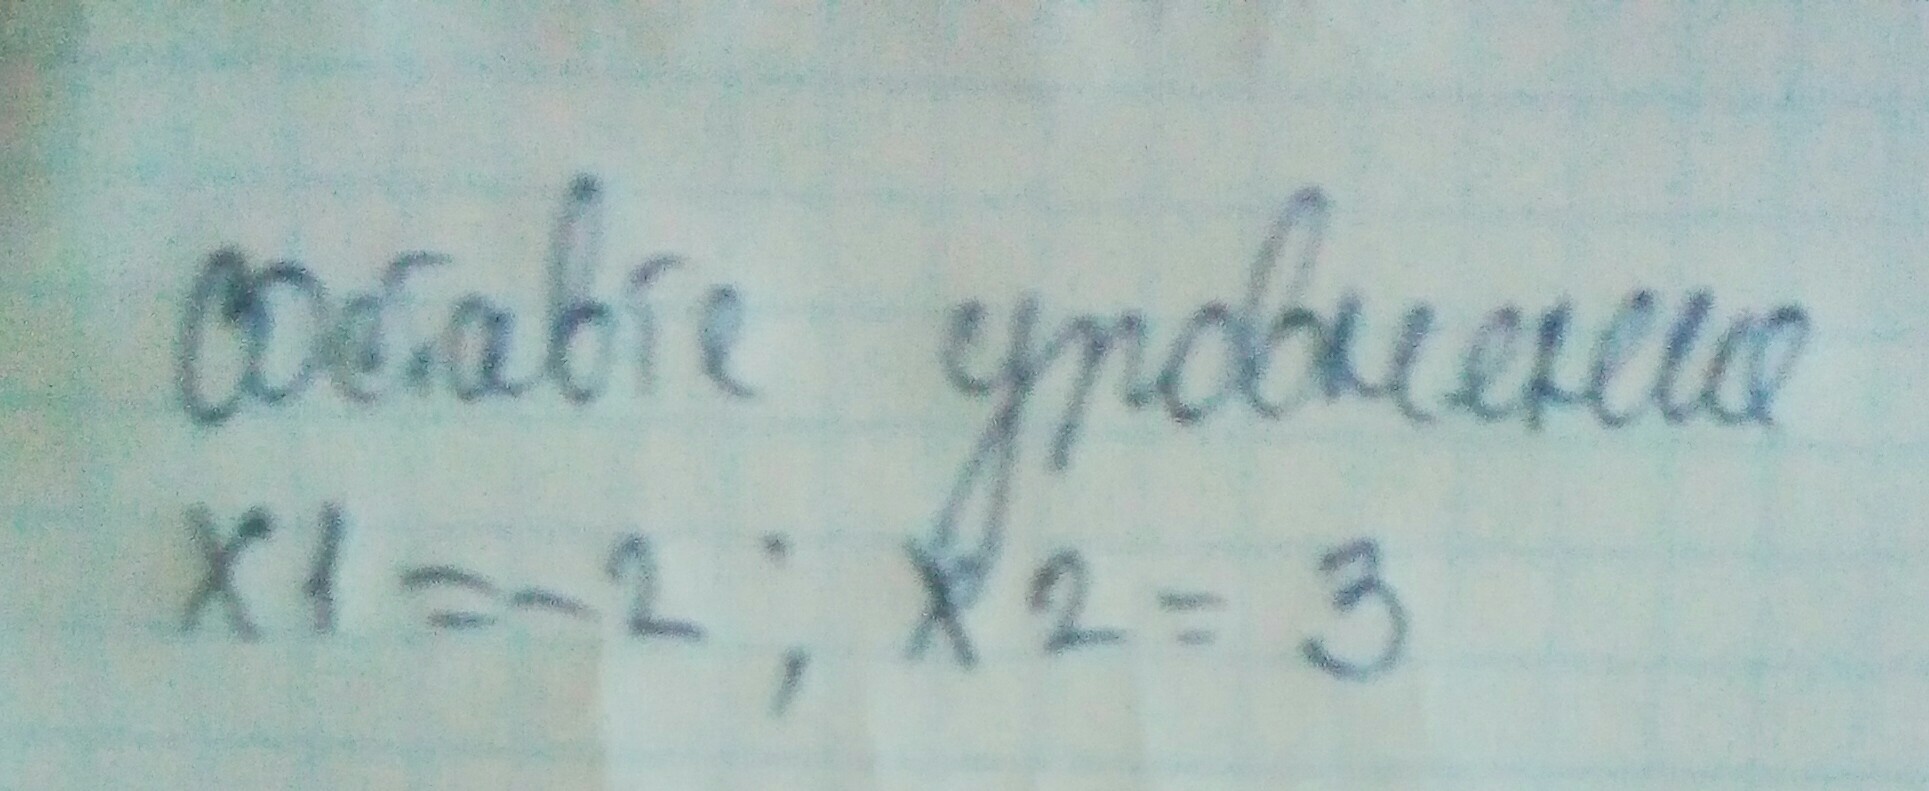 составте уровнение
x1=-2; x2=3